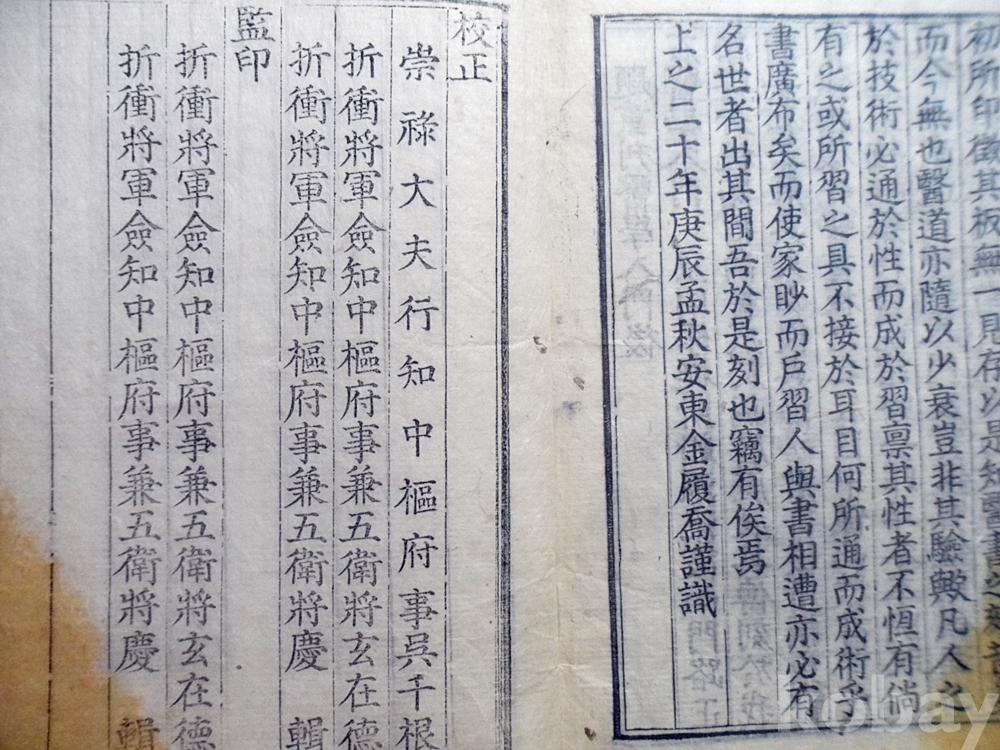 初所印徵其板無一見存以是知醫書之
而今無也醫道亦隨以少衰豈非其驗歟凡人之
於技術必通於性而成於習禀其性者不恒有倘
有之或所習之具不接於耳目何所通而成術乎
書廣布矣而使家眇而戶習人與書相遭亦必有
名世者出其間吾於是刻也竊有俟焉
上之二十年庚辰孟秋安東金履喬謹識
校正
崇祿大夫行知中樞府事吳千根
折衝將軍僉知中樞府事兼五衛將玄在德
折衝將軍僉知中樞府事兼五衛將慶 輯
監印
折衝將軍僉知中樞府事兼五衛將玄在德
折衝將軍僉知中樞府事兼五衛將慶 輯
kobay